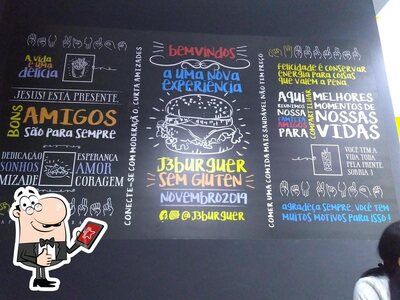 A vida
é uma
delícia
JESUS! ESTA PRESENTE
BONS
AMIGOS
SÃO PARA SEMPRE
DEDICAÇÃO
SONHOS
ESPERANÇA
AMOR
CORAGEM
CONECTE-SE COM MODERAÇÃO, CURTA AMIZADES
BEMVINDOS
A UMA NOVA
EXPERIÊNCIA
J3BURGUER
SEM GLUTEN
NOVEMBRO2019
@J3BURGUER
COMER UMA COMIDA MAIS SAUDÁVEL NÃO TEM PREÇO
FELICIDADE É CONSERVAR
ENERGIA PARA COISAS
QUE VALEM A PENA
AQUI
REUNIMOS
NOSSA
FAMÍLIA
AMIGOS
PARA
COMPARTILHAR
MELHORES
MOMENTOS DE
NOSSAS
VIDAS
VOCÊ TEM A
VIDA TODA
PELA FRENTE
SORRIA :)
AGRADEÇA SEMPRE, VOCÊ TEM
MUITOS MOTIVOS PARA ISSO!